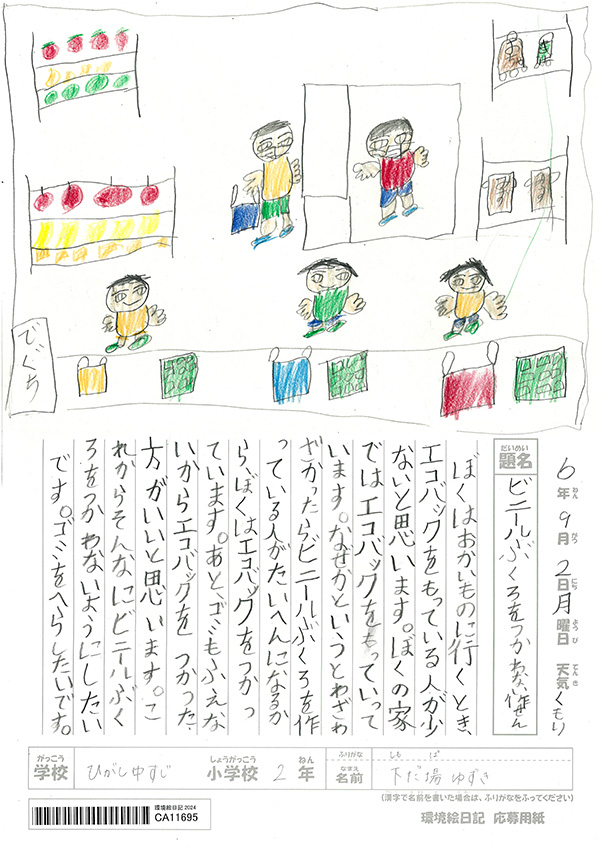 でぐち
6年 9月 2日 月曜日 天気 くもり
ねん がつ にち ようび てんき
だいめい
題名
ビニールぶくろをつかわない作せん
ぼくはおかいものに行くとき、
エコバックをもっている人が少
ないと思います。ぼくの家
ではエコバックをもっていって
います。なぜかというとわざわ
ざかったらビニールぶくろを作
っている人がたいへんになるか
ら、ぼくはエコバックをつかっ
ています。あと、ゴミもふえな
いからエコバックをつかった
方がいいと思います。こ
れからそんなにビニールぶく
ろをつかわないようにしたい
です。ゴミをへらしたいです。
がっこう しょうがっこう ねん ふりがな しも
学校 ひがし中すじ 小学校 2年 なまえ 名前 下だ場 ゆずき
(漢字で名前を書いた場合は、ふりがなをふってください)
環境絵日記 2024
CA11695
環境絵日記 応募用紙